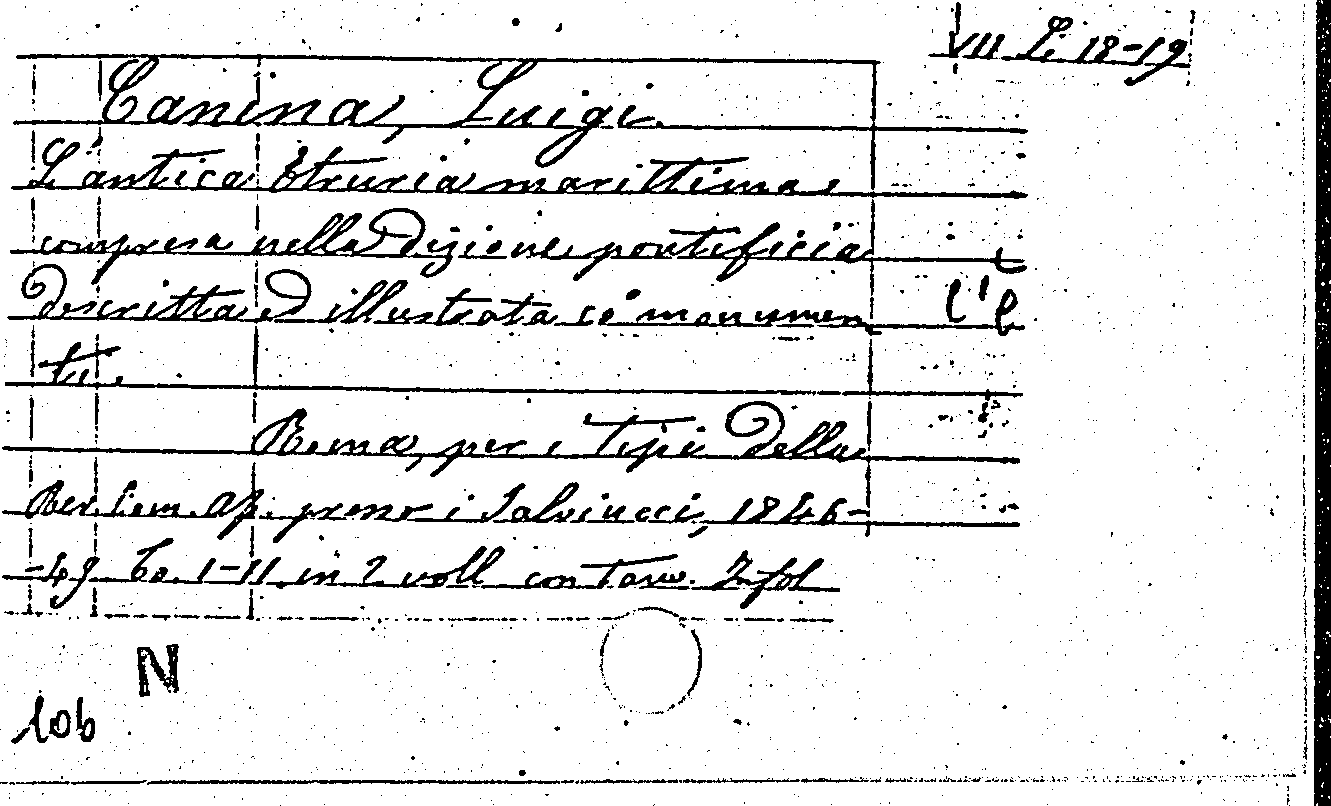 VII L. 18-19
Canina, Luigi.
L'antica Etruria marittima
compresa nella dizione pontificia
descritta ed illustrata co' monumen
ti.
Roma, per i tipi della
Rev. Cam. Ap. presso i Salviucci, 1846-
-49 To. 1-II in 2 voll con Tavv. fol
N
106